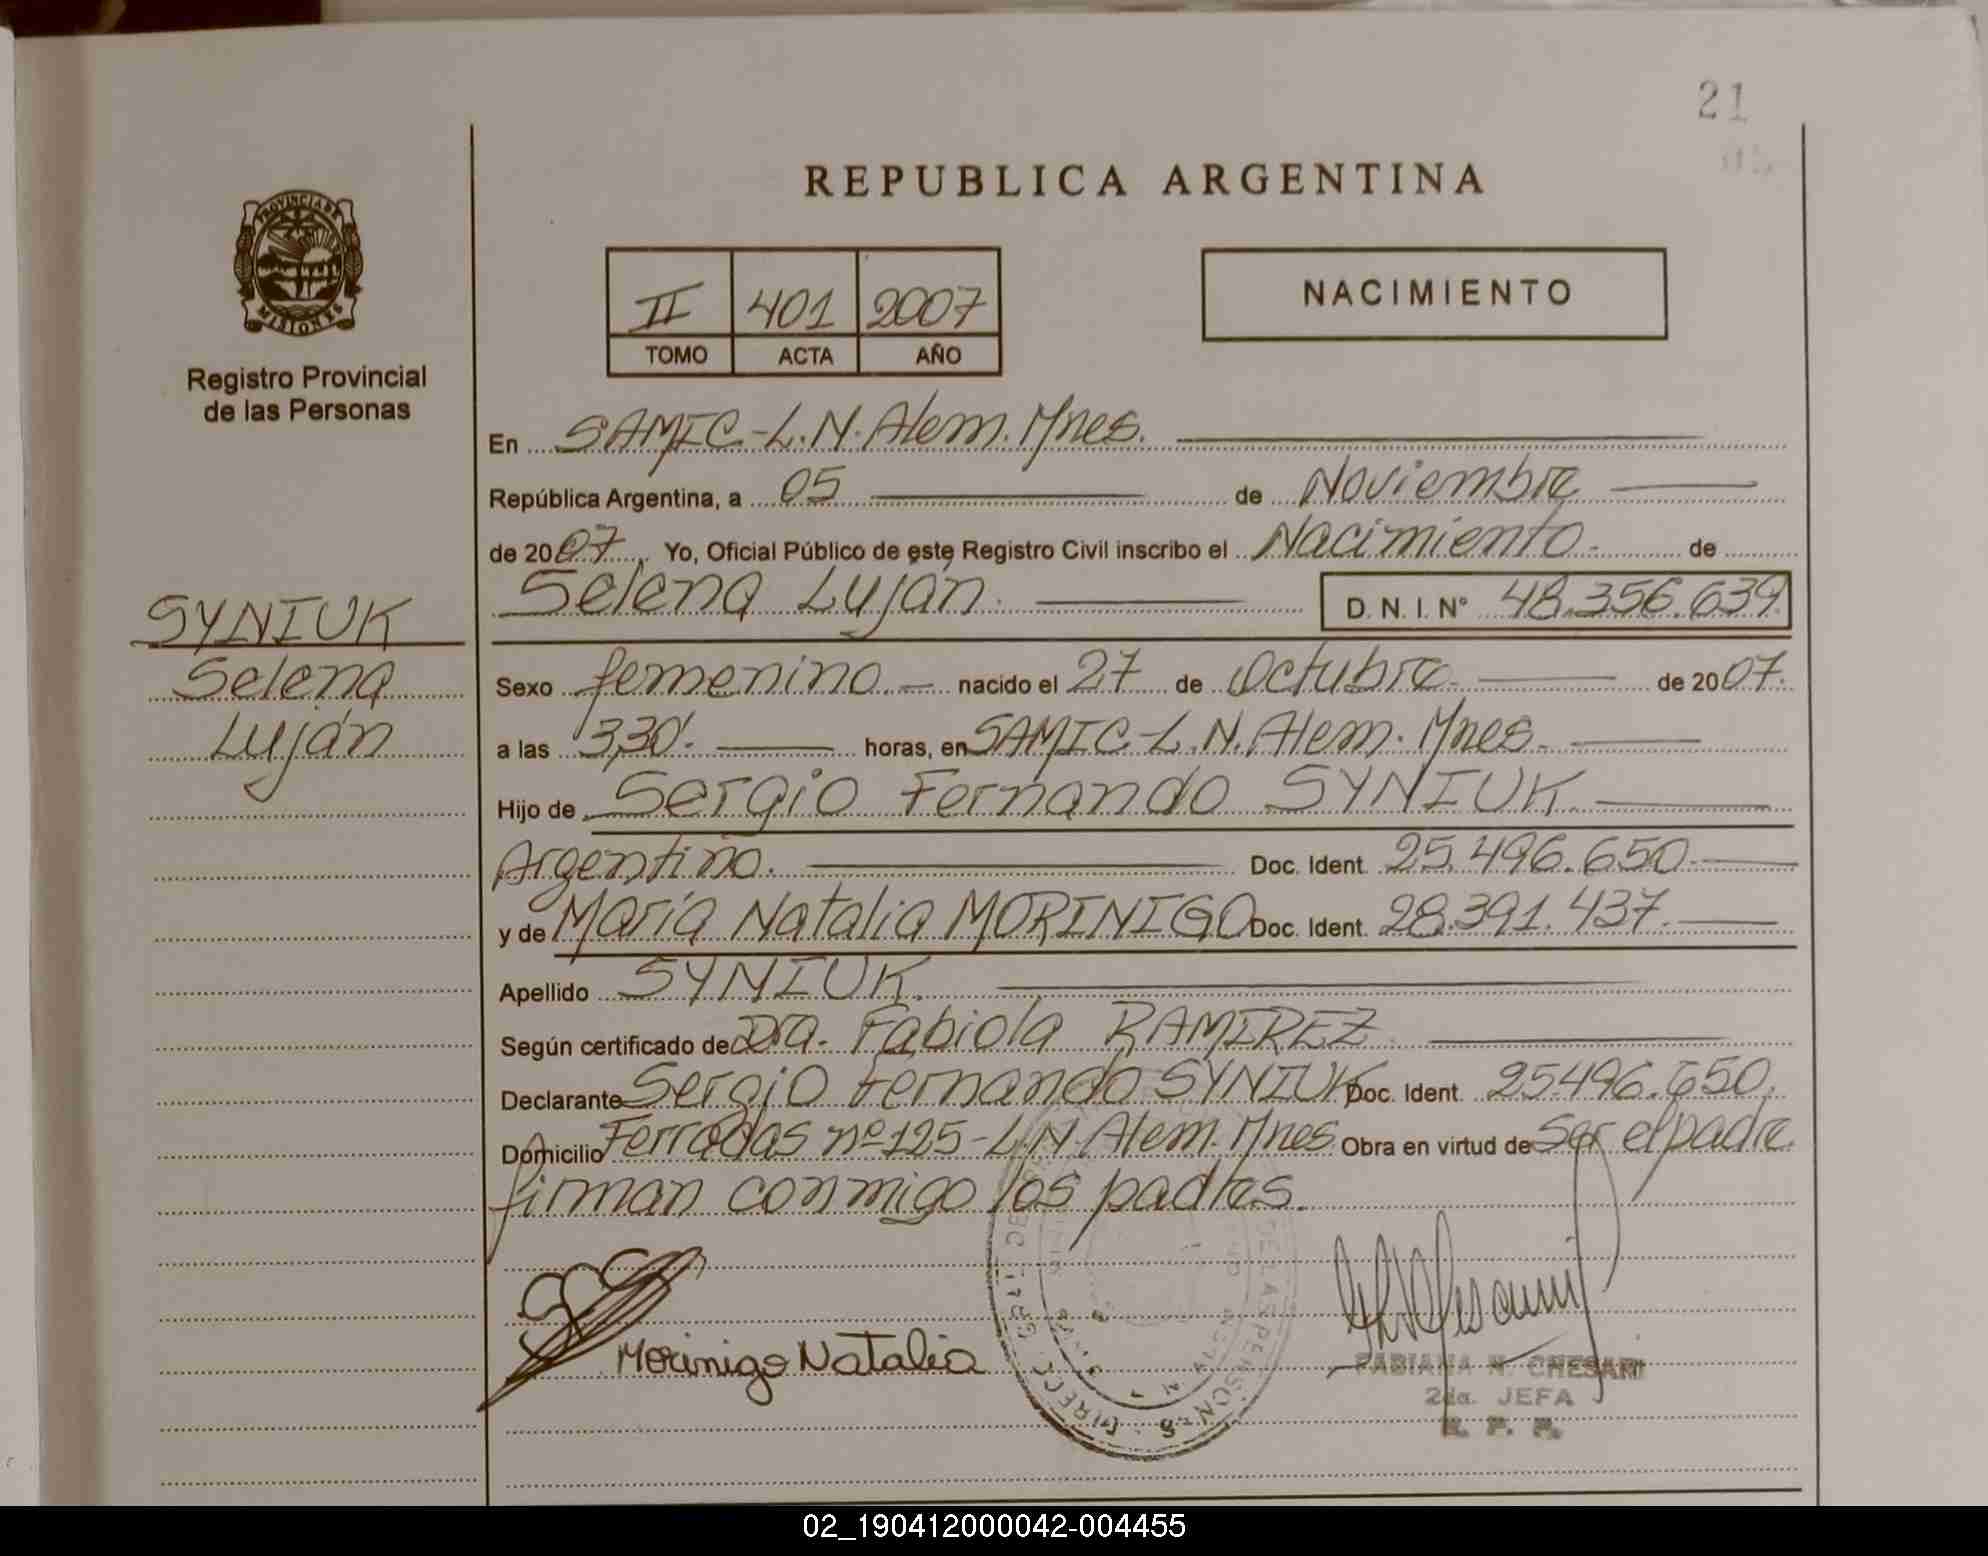 21
REPUBLICA ARGENTINA
PROVINCIA DE
MISIONES
Registro Provincial
de las Personas
II 401 2007
TOMO ACTA AÑO
NACIMIENTO
En SAMIC.-L.N.Alem.Mnes.
República Argentina, a 05 de Noviembre
de 2007. Yo, Oficial Público de este Registro Civil inscribo el Nacimiento.- de
Selena Luján. D.N.I. Nº 48.356.639
SYNIUK
Selena
Luján
Sexo femenino.- nacido el 27 de Octubre.- de 2007.
a las 3,30'. horas, en SAMIC.-L.N.Alem.Mnes.
Hijo de Sergio Fernando SYNIUK.
Argentino. Doc. Ident. 25.496.650.
y de María Natalia MORINIGO Doc. Ident. 28.391.437.
Apellido SYNIUK.
Según certificado de Dra. Fabiola RAMIREZ.
Declarante Sergio Fernando SYNIUK Doc. Ident. 25.496.650.
Domicilio Ferradas nº 125-L.N.Alem.Mnes. Obra en virtud de Ser el padre.
firman conmigo los padres.
Morinigo Natalia
FABIANA N. CHESANI
2da. JEFA
R. P. P.
02_190412000042-004455